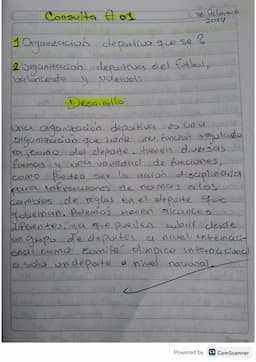 Consulta # 01
18 Febrero
2019
1 Organización deportiva que se?
2 Organización deportiva del fútbol,
baloncesto y voleibol.
Desarrollo
Una organización deportiva es una
organización que tiene una función regulado
ra, como del deporte, tienen diversas
formas y una variedad de funciones,
como pueden ser la acción disciplinaria
para infracciones de normas a los
cambios de reglas en el deporte que
gobiernan. Además tienen alcances
diferentes, ya que pueden cubrir desde
un grupo de deportes a nivel internaci-
onal como comité olímpico internacional
o solo un deporte a nivel nacional.
Powered by CamScanner